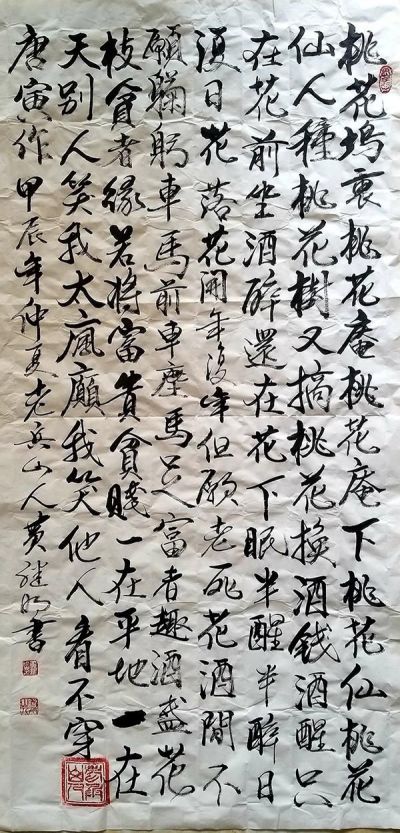 桃花塢裏桃花庵桃花庵下桃花仙桃花
仙人種桃花樹又摘桃花換酒錢酒醒只
在花前坐酒醉還在花下眠半醒半醉日
復日花落花開年復年但願老死花酒間不
願鞠躬車馬前車塵馬足富者趣酒盞花
枝貧者緣若將富貴貧賤一在平地一在
天別人笑我太瘋癲我笑他人看不穿
唐寅作甲辰年仲夏老兵山人黄書